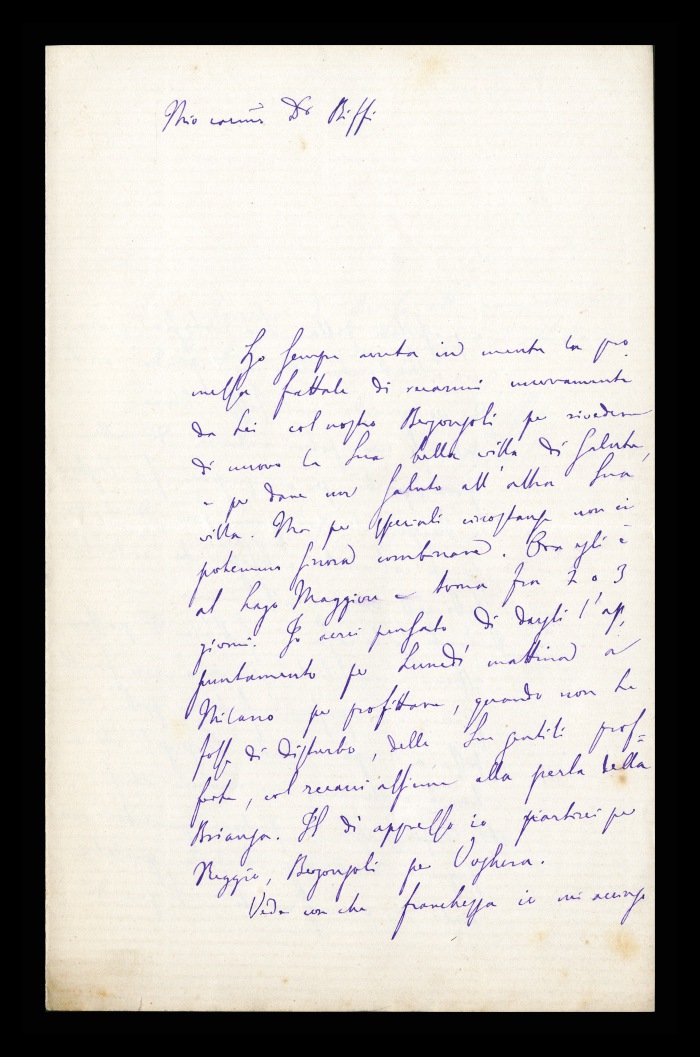 Mio cariss. Dr Biffi
Ho sempre avuta in mente la pro
messa fattale di recarmi nuovamente
da Lei col nostro Bergonzoli per rivedere
di nuovo la Sua bella villa di Galliate,
e per dare un saluto all'altra Sua
villa. Ma per speciali circostanze non ci
potemmo finora combinare. Ora egli è
al Lago Maggiore e torna fra 2 o 3
giorni. Io avrei pensato di dargli l'ap,
puntamento per Lunedì mattina a
Milano per profittare, quando non Le
fosse di disturbo, delle Sue gentili prof=
ferte, col recarci assieme alla perla della
Brianza. Il dì appresso io partirei per
Reggio, Bergonzoli per Voghera.
Vede con che franchezza io mi accingo